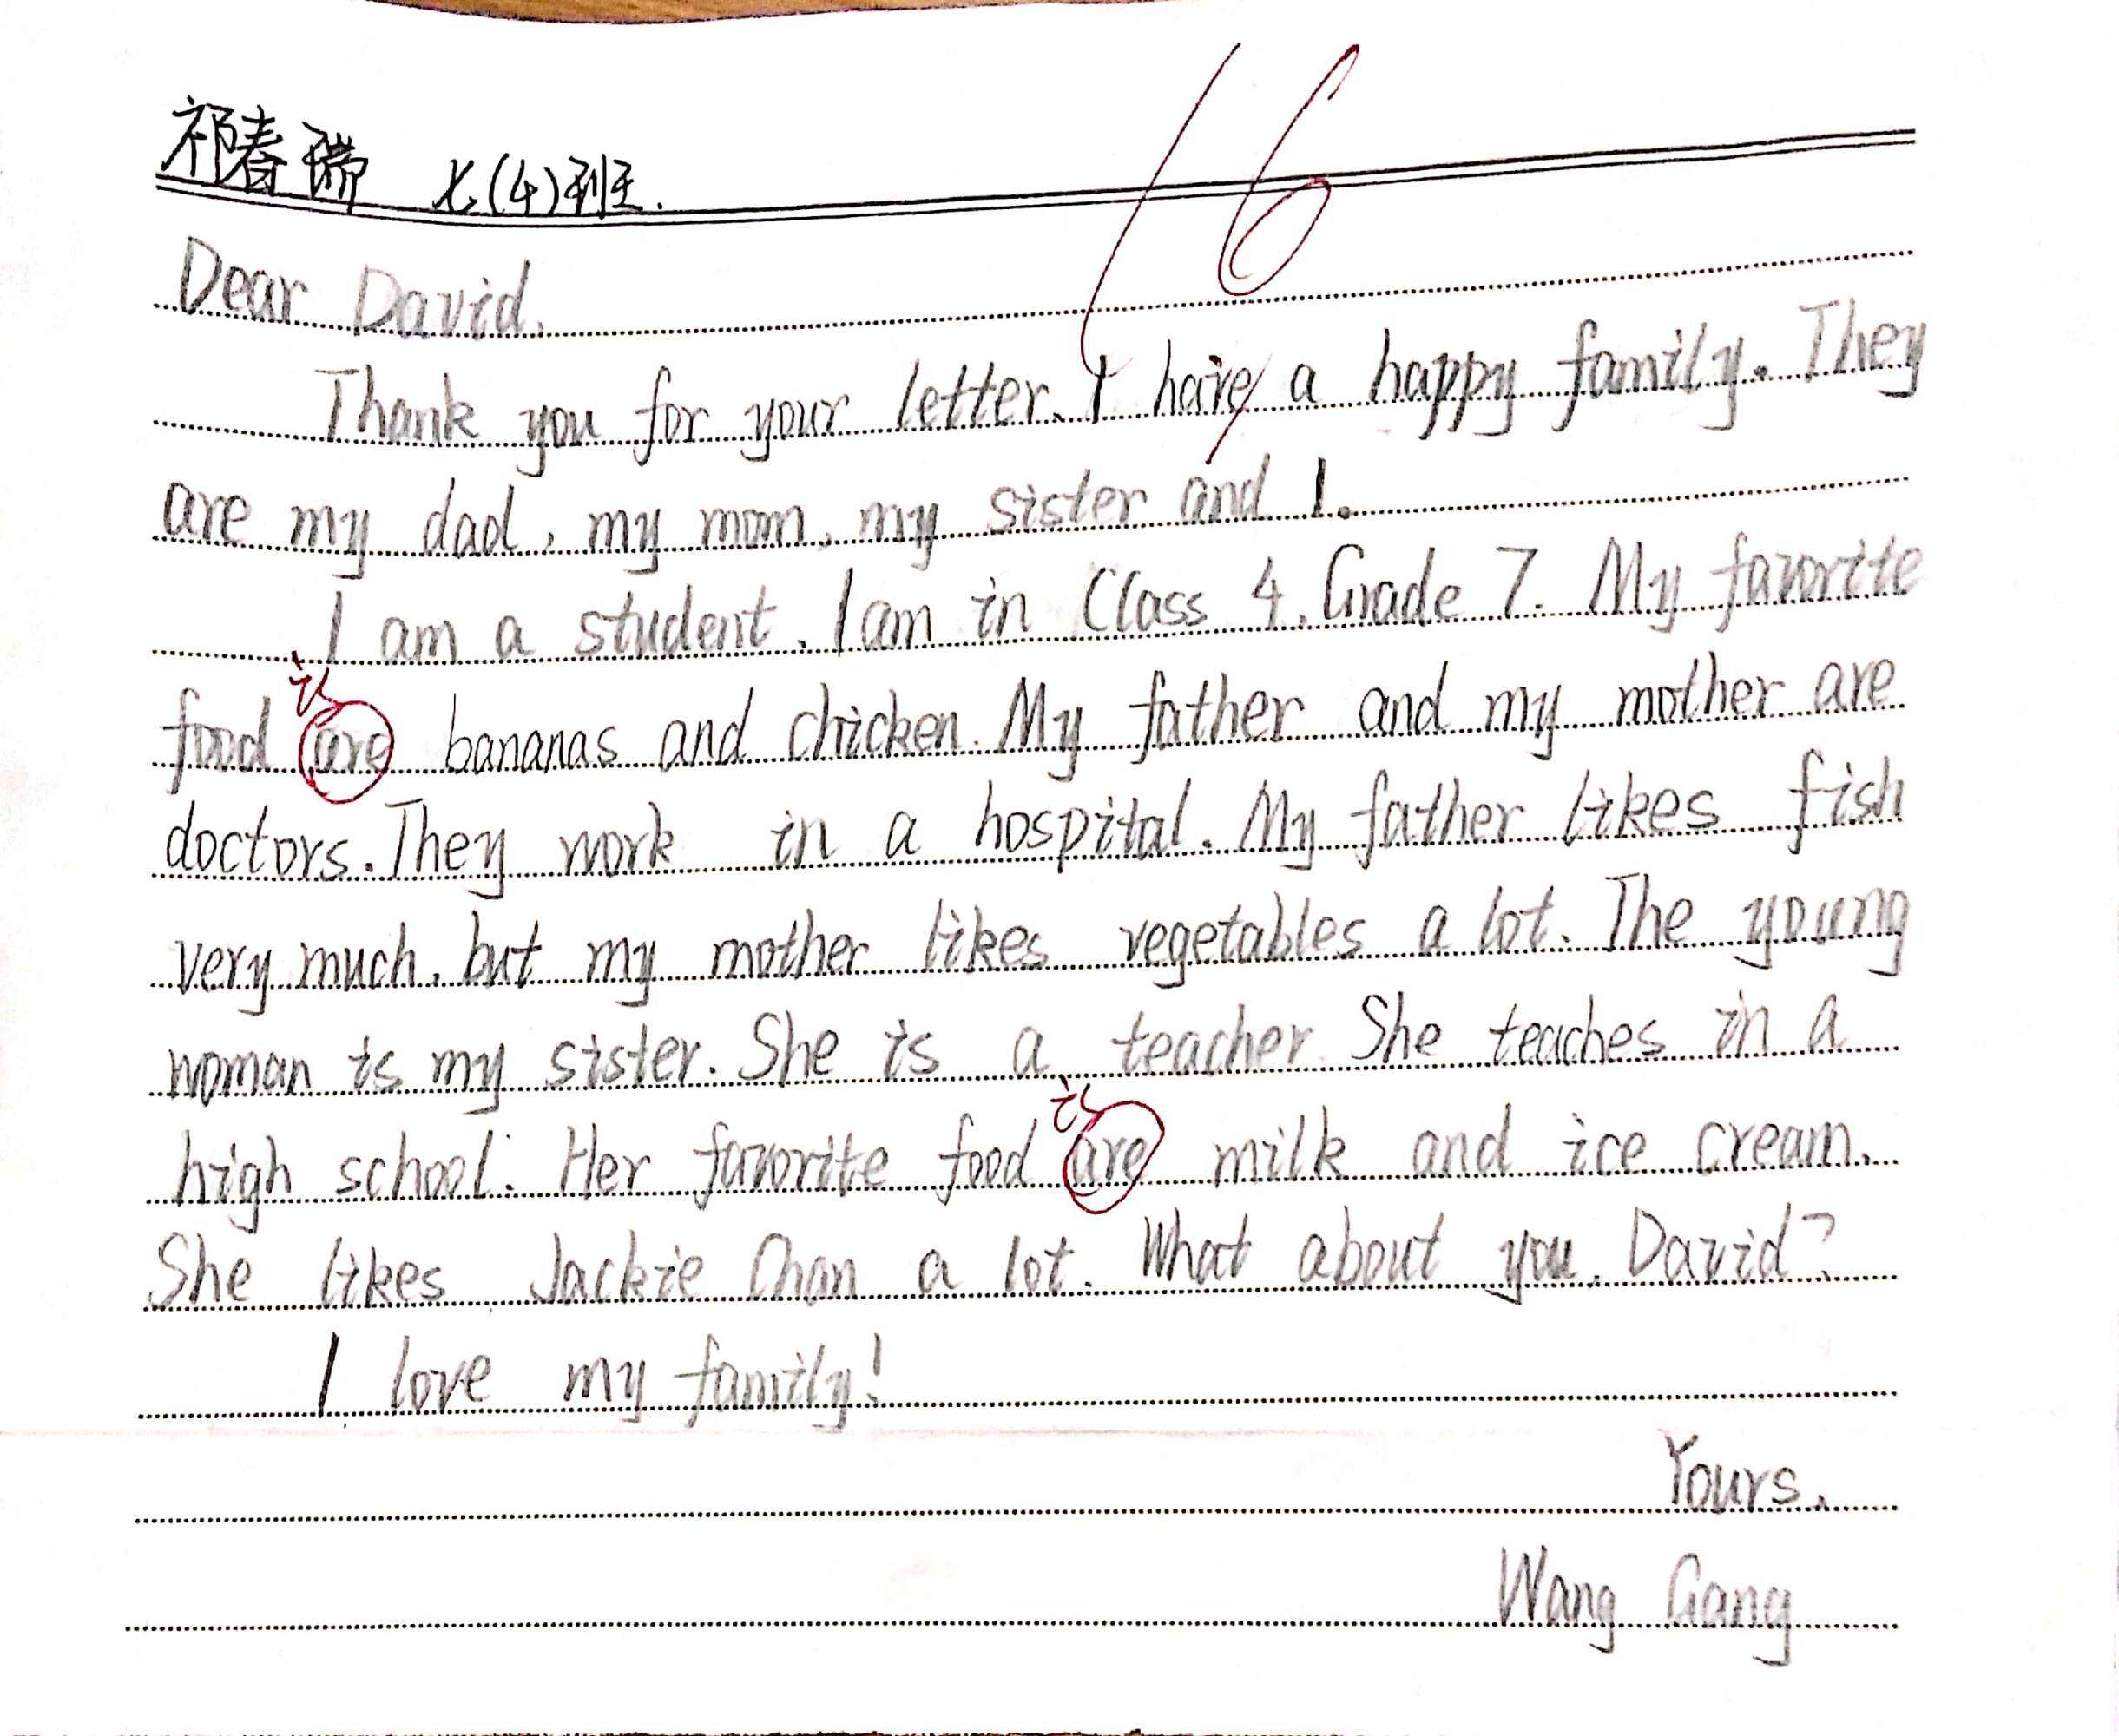 祁春瑞 七(4)班.
16
Dear David,
Thank you for your letter. I have a happy family. They
are my dad, my mom, my sister and I.
I am a student. I am in Class 4, Grade 7. My favorite
is
food are bananas and chicken. My father and my mother are
doctors. They work in a hospital. My father likes fish
very much, but my mother likes vegetables a lot. The young
woman is my sister. She is a teacher. She teaches in a
is
high school. Her favorite food are milk and ice cream.
She likes Jackie Chan a lot. What about you, David?
I love my family!
Yours,
Wang Gang